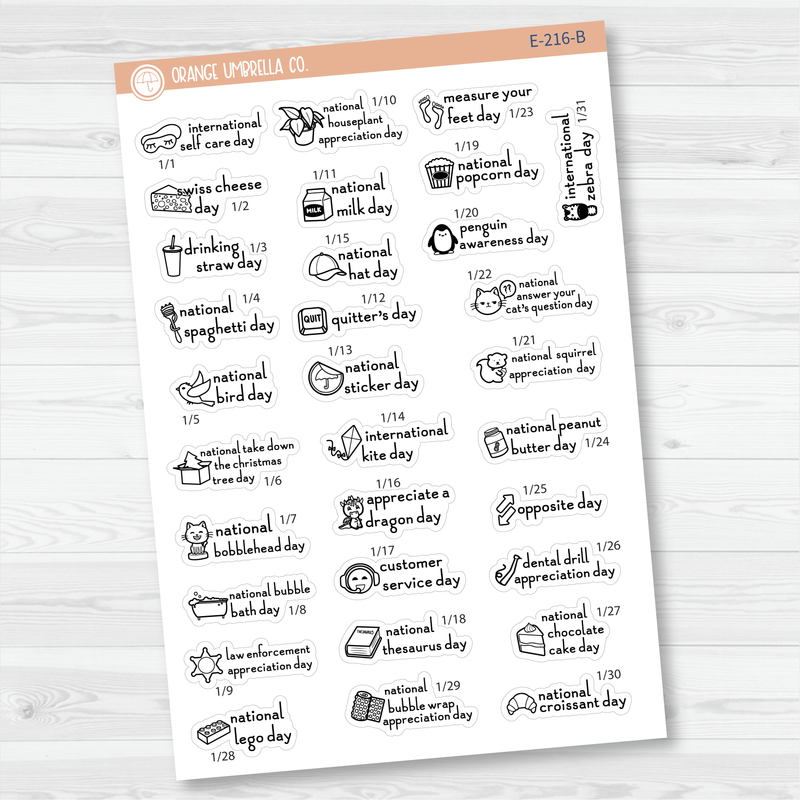 ORANGE UMBRELLA CO.
E-216-B
international
self care day
1/1
swiss cheese
day 1/2
drinking 1/3
straw day
national 1/4
spaghetti day
national
bird day
1/5
national take down
the christmas
tree day 1/6
national 1/7
bobblehead day
national bubble
bath day 1/8
law enforcement
appreciation day
1/9
national
lego day
1/28
national 1/10
houseplant
appreciation day
1/11
national
milk day
MILK
1/15
national
hat day
1/12
quitter's day
QUIT
1/13
national
sticker day
1/14
international
kite day
1/16
appreciate a
dragon day
1/17
customer
service day
national 1/18
thesaurus day
THESAURUS
national 1/29
bubble wrap
appreciation day
measure your
feet day 1/23
1/19
national
popcorn day
1/20
penguin
awareness day
1/22
??
national
answer your
cat's question day
1/21
national squirrel
appreciation day
national peanut
butter day 1/24
1/25
opposite day
1/26
dental drill
appreciation day
national 1/27
chocolate
cake day
1/30
national
croissant day
international
zebra day 1/31